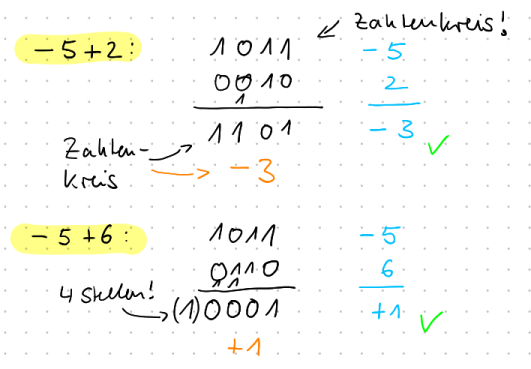 Zahlenkreis!
-5+2: 1011 -5
0010 2
1
1101 -3
Zahlen-
kreis -3
-5+6: 1011 -5
0110 6
1 1
4 Stellen! (1)0001 +1
+1